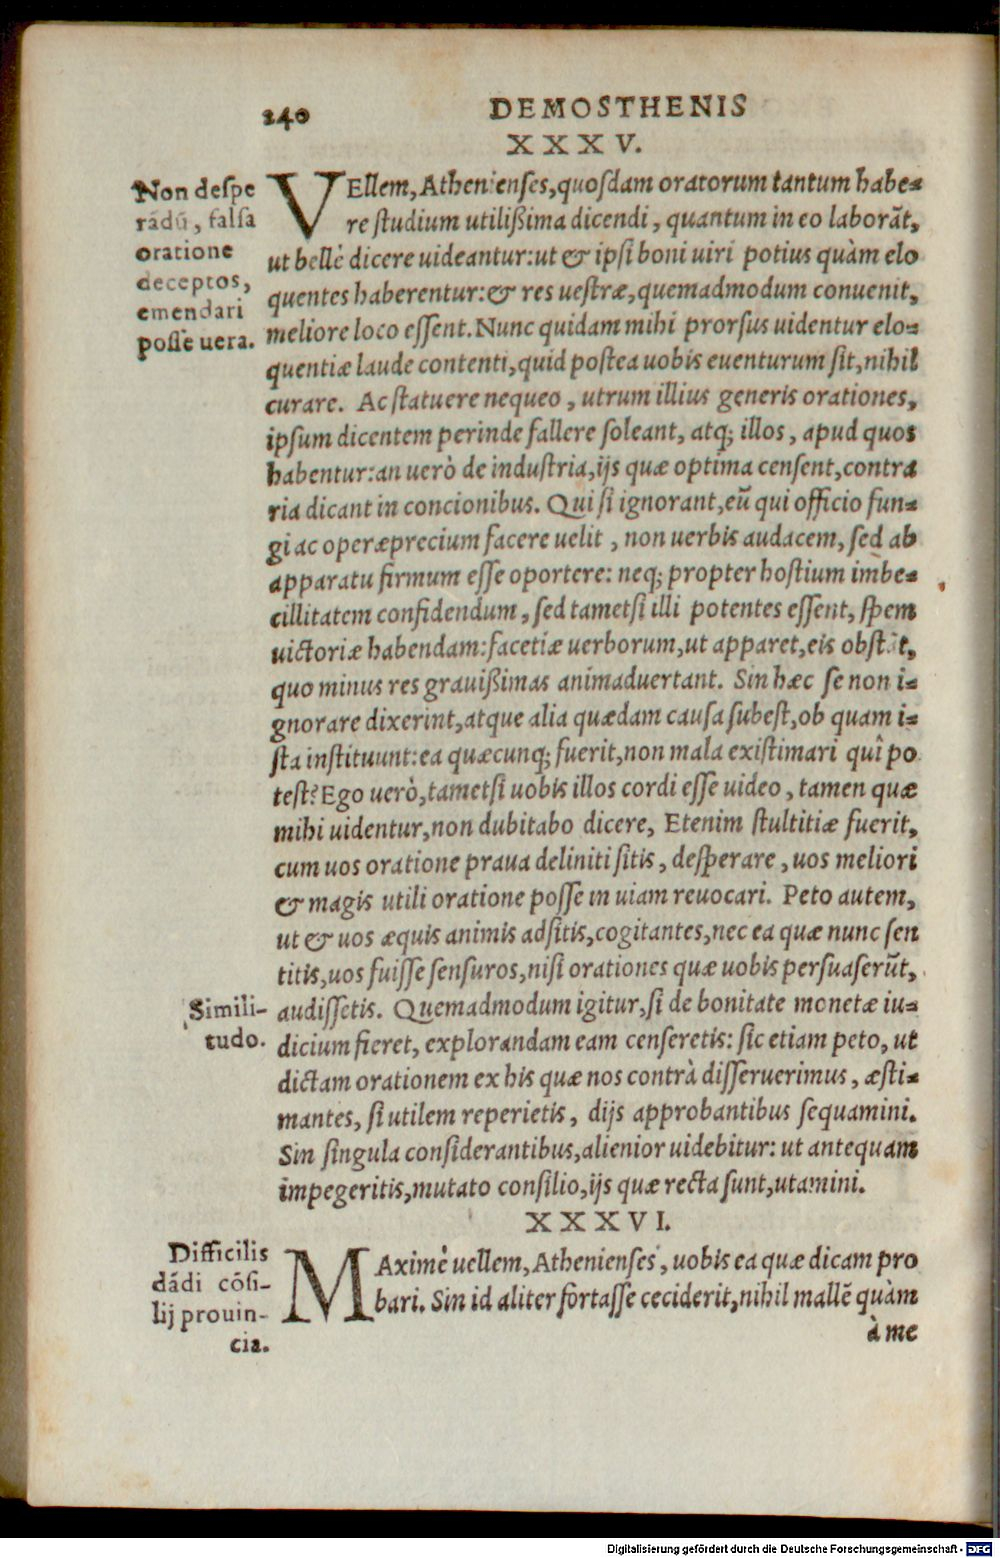 240 DEMOSTHENIS
XXXV.
Non despe
rādū, falsa
oratione
deceptos,
emendari
posse uera.
VEllem, Athenienses, quosdam oratorum tantum habe=
re studium utilißima dicendi, quantum in eo laborāt,
ut bellè dicere uideantur: ut & ipsi boni uiri potius quàm elo
quentes haberentur: & res uestræ, quemadmodum conuenit,
meliore loco essent. Nunc quidam mihi prorsus uidentur elo=
quentiæ laude contenti, quid postea uobis euenturum sit, nihil
curare. Ac statuere nequeo, utrum illius generis orationes,
ipsum dicentem perinde fallere soleant, atq; illos, apud quos
habentur: an uerò de industria, ijs quæ optima censent, contra
ria dicant in concionibus. Qui si ignorant, eū qui officio fun=
gi ac operæprecium facere uelit, non uerbis audacem, sed ab
apparatu firmum esse oportere: neq; propter hostium imbe=
cillitatem confidendum, sed tametsi illi potentes essent, spem
uictoriæ habendam: facetiæ uerborum, ut apparet, eis obstāt,
quo minus res grauißimas animaduertant. Sin hæc se non i=
gnorare dixerint, atque alia quædam causa subest, ob quam i=
sta instituunt: ea quæcunq; fuerit, non mala existimari quî po
test? Ego uerò, tametsi uobis illos cordi esse uideo, tamen quæ
mihi uidentur, non dubitabo dicere, Etenim stultitiæ fuerit,
cum uos oratione praua deliniti sitis, desperare, uos meliori
& magis utili oratione posse in uiam reuocari. Peto autem,
ut & uos æquis animis adsitis, cogitantes, nec ea quæ nunc sen
titis, uos fuisse sensuros, nisi orationes quæ uobis persuaserūt,
Simili-
tudo.
audissetis. Quemadmodum igitur, si de bonitate monetæ iu=
dicium fieret, explorandam eam censeretis: sic etiam peto, ut
dictam orationem ex his quæ nos contrà disseruerimus, æsti=
mantes, si utilem reperietis, dijs approbantibus sequamini.
Sin singula considerantibus, alienior uidebitur: ut antequam
impegeritis, mutato consilio, ijs quæ recta sunt, utamini.
XXXVI.
Difficilis
dādi cōsi-
lij prouin-
cia.
MAximè uellem, Athenienses, uobis ea quæ dicam pro
bari. Sin id aliter fortasse ceciderit, nihil mallē quàm
à me
Digitalisierung gefördert durch die Deutsche Forschungsgemeinschaft - DFG